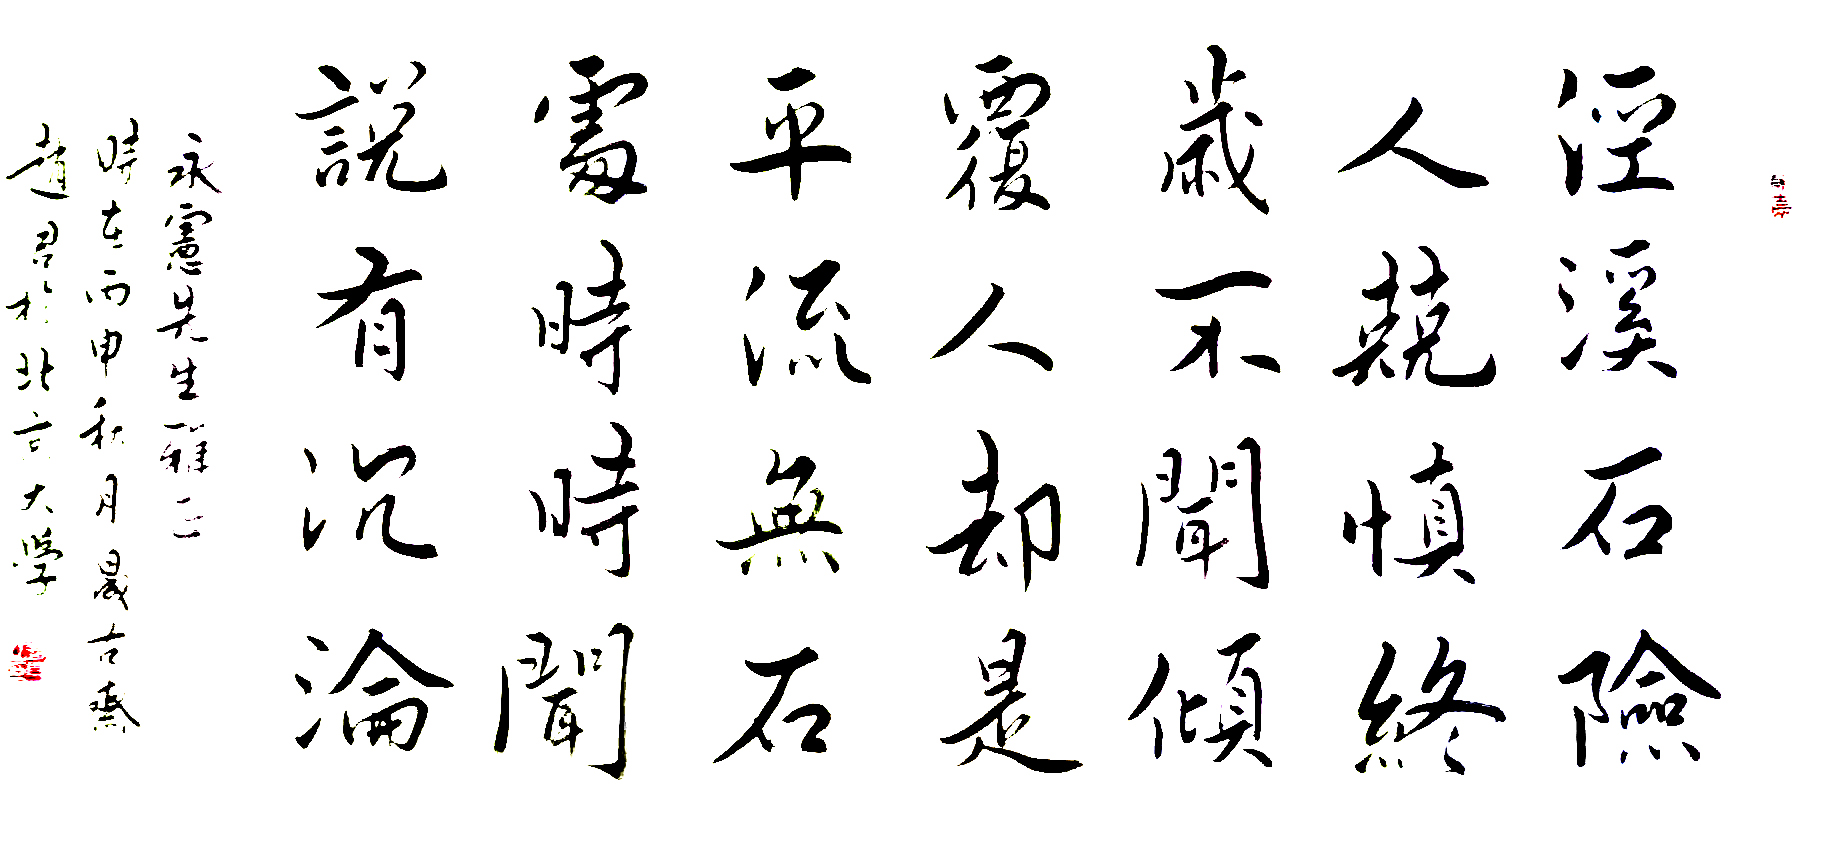 涇溪石險
人兢慎終
歲不聞傾
覆人却是
平流無石
處時時聞
說有沉淪
永憲先生雅正
時在丙申秋月晟古齋
趙君於北京大學